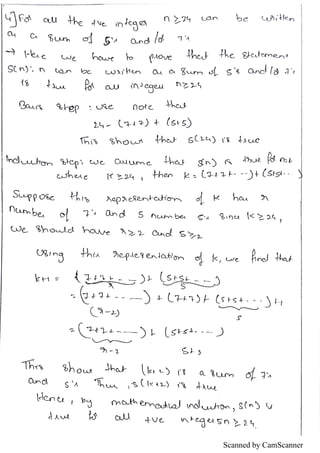 4] For all the +ve integer n ≥ 24 can be written
as a sum of 5's and/d 7's
→ Here we have to prove that the statement
S(n): n can be written as a sum of 5's and/d 7's
is true for all integer n≥24
Basis step: use note that
24 = (7+7) + (5+5)
This shows that S(24) is true
Induction step: we assume that S(n) is true for n=k
where k≥24, then k = (7+7+...)+(5+5+...)
Suppose this representation of k has r
number of 7's and s number 5's since k≥24,
we should have r≥2 and s≥2
Using this representation of k, we find that
k+1 = (7+7+ - - -)+ (5+5+...)
r s
= (7+7+ - - -) + (7+7)+ (5+5+...)+1
(r-2) s
= (7+7+ - - -) + (5+5+ - - -)
r-2 s+3
This shows that (k+1) is a sum of 7's
and 5's Thus, S(k+1) is true
Hence, by mathematical induction, S(n) is
true for all +ve integers n ≥ 24.
Scanned by CamScanner